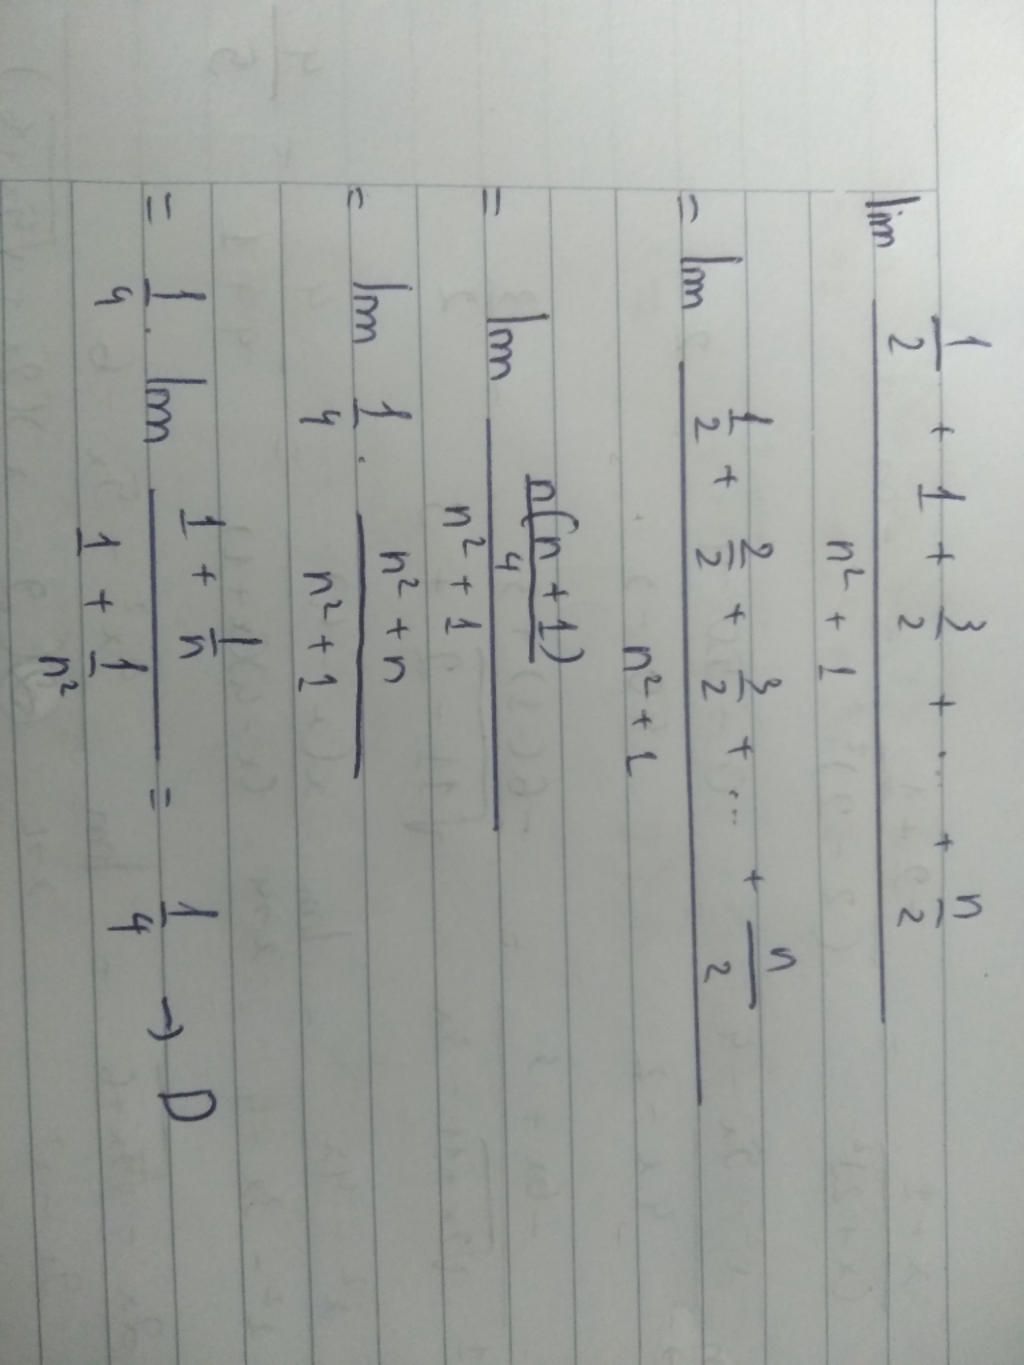 lim (1/2 + 1 + 3/2 + ... + n/2) / (n² + 1)
= lim (1/2 + 2/2 + 3/2 + ... + n/2) / (n² + 1)
= lim (n(n + 1)/4) / (n² + 1)
= lim 1/4 . (n² + n) / (n² + 1)
= 1/4 . lim (1 + 1/n) / (1 + 1/n²) = 1/4 → D